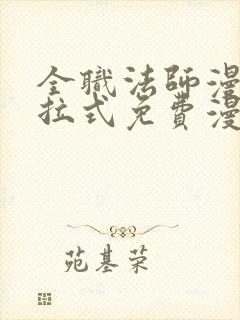 全職法師漫
拉式免費漫
苑基荣